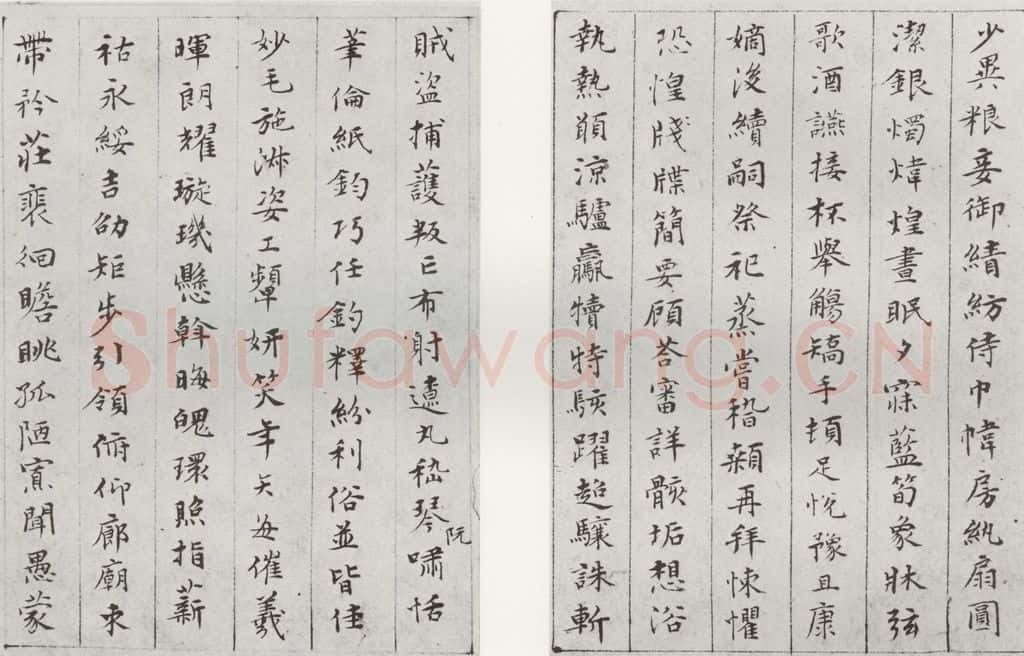 少異粮妾御績紡侍巾幃房紈扇圓
潔銀燭煒煌晝眠夕寐藍筍象牀弦
歌酒讌接杯舉觴矯手頓足悅豫且康
嫡後續嗣祭祀蒸嘗稽顙再拜悚懼
恐惶牋牒簡要顧荅審詳骸垢想浴
執熱願涼驢驘犢特駭躍超驤誅斬
賊盜捕獲叛亡布射遼丸嵇琴阮嘯恬
筆倫紙鈞巧任釣釋紛利俗並皆佳
妙毛施淑姿工顰妍笑年矢每催羲
暉朗耀璇璣懸斡晦魄環照指薪
祜永綏吉劭矩步引領俯仰廊廟束
帶矜莊裴徊瞻眺孤陋寡聞愚蒙
Shufawang.CN